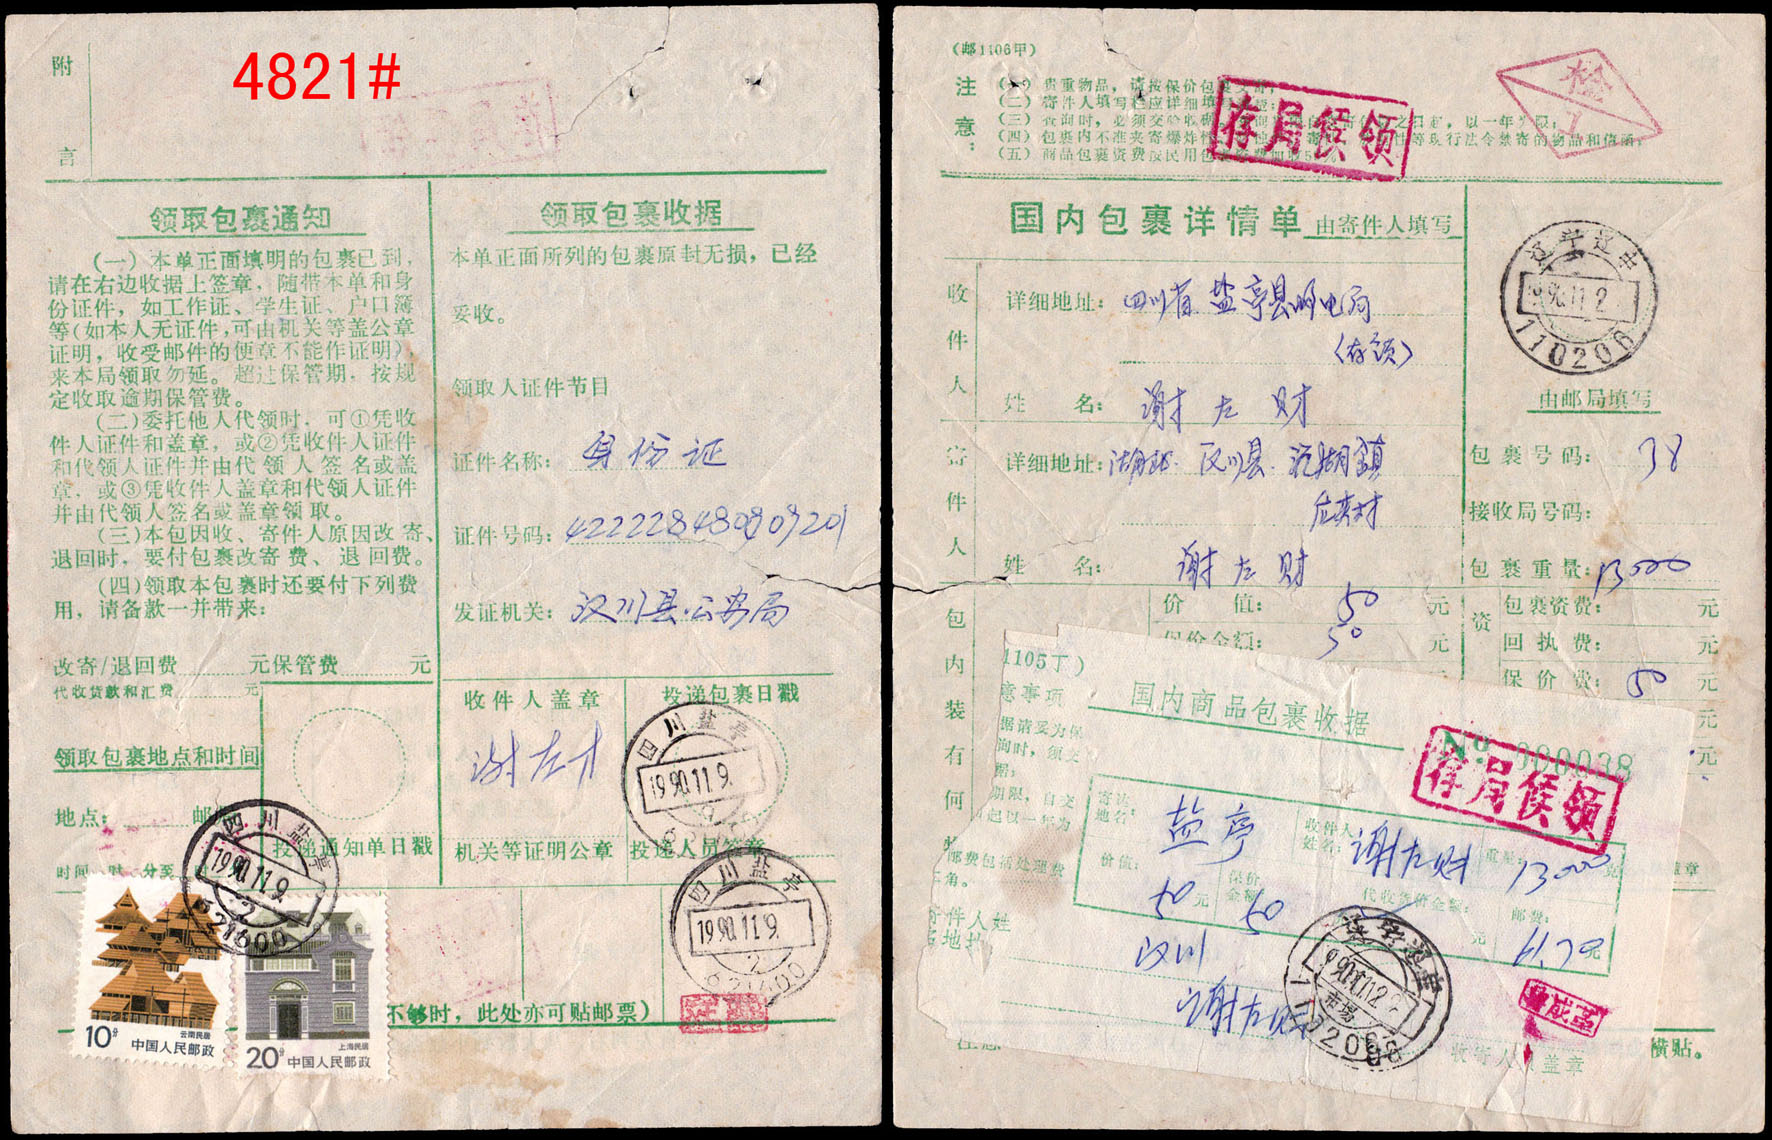 4821#
附
言
领取包裹通知
(一)本单正面填明的包裹已到，
请在右边收据上签章，随带本单和身
份证件，如工作证、学生证、户口簿
等(如本人无证件，可由机关等盖公章
证明，收受邮件的便章不能作证明)，
来本局领取勿延。超过保管期，按规
定收取逾期保管费。
(二)委托他人代领时，可①凭收
件人证件和盖章，或②凭收件人证件
和代领人证件并由代领人签名或盖
章，或③凭收件人盖章和代领人证件
并由代领人签名或盖章领取。
(三)本包因收、寄件人原因改寄、
退回时，要付包裹改寄费、退回费。
(四)领取本包裹时还要付下列费
用，请备款一并带来：
改寄/退回费 元保管费 元
代收货款和汇费 元
领取包裹地点和时间
地点： 邮
时间 时 分至
投递通知单日戳
领取包裹收据
本单正面所列的包裹原封无损，已经
妥收。
领取人证件节目
证件名称：身份证
证件号码：422228480809201
发证机关：汉川县公安局
收件人盖章
投递包裹日戳
谢左才
机关等证明公章
投递人员签章
四川盐亭
1990.11.9.
四川盐亭
1990.11.9.
2
621600
四川盐亭
1990.11.9.
2
621600
不够时，此处亦可贴邮票)
10分
云南民居
中国人民邮政
20分
上海民居
中国人民邮政
(邮1106甲)
注
意：
(一)贵重物品，请按保价包裹交寄；
(二)寄件人填写栏应详细填
(三)查询时，必须交验收据。 之日起，以一年为限；
(四)包裹内不准夹寄爆炸 性等现行法令禁寄的物品和信函；
(五)商品包裹资费按民用包
存局候领
检
1
国内包裹详情单 由寄件人填写
收件人
详细地址：四川省盐亭县邮电局
(存领)
姓 名：谢左财
寄件人
详细地址：湖北 汉川县 汈湖镇
姓 名：谢左财
辽宁辽中
1990.11.2
110206
由邮局填写
包裹号码：38
接收局号码：
包裹重量：13000
包内装有何
价 值：50 元
保价金额：50 元
资
包裹资费： 元
回执费： 元
保价费：50 元
元
元
1105丁)
国内商品包裹收据
意事项
据请妥为保
询时，须交
据；
期限，自交
起以一年为
邮费包括处理费
角。
№ 000038
存局候领
寄达地名：盐亭
收件人姓名：谢左财
重量：13000克
价值：50元
保价金额：50
代收货价金额： 元
邮费：11.70元
件人姓
地址
汉川
谢左财
市场
收寄人员盖章
横贴。